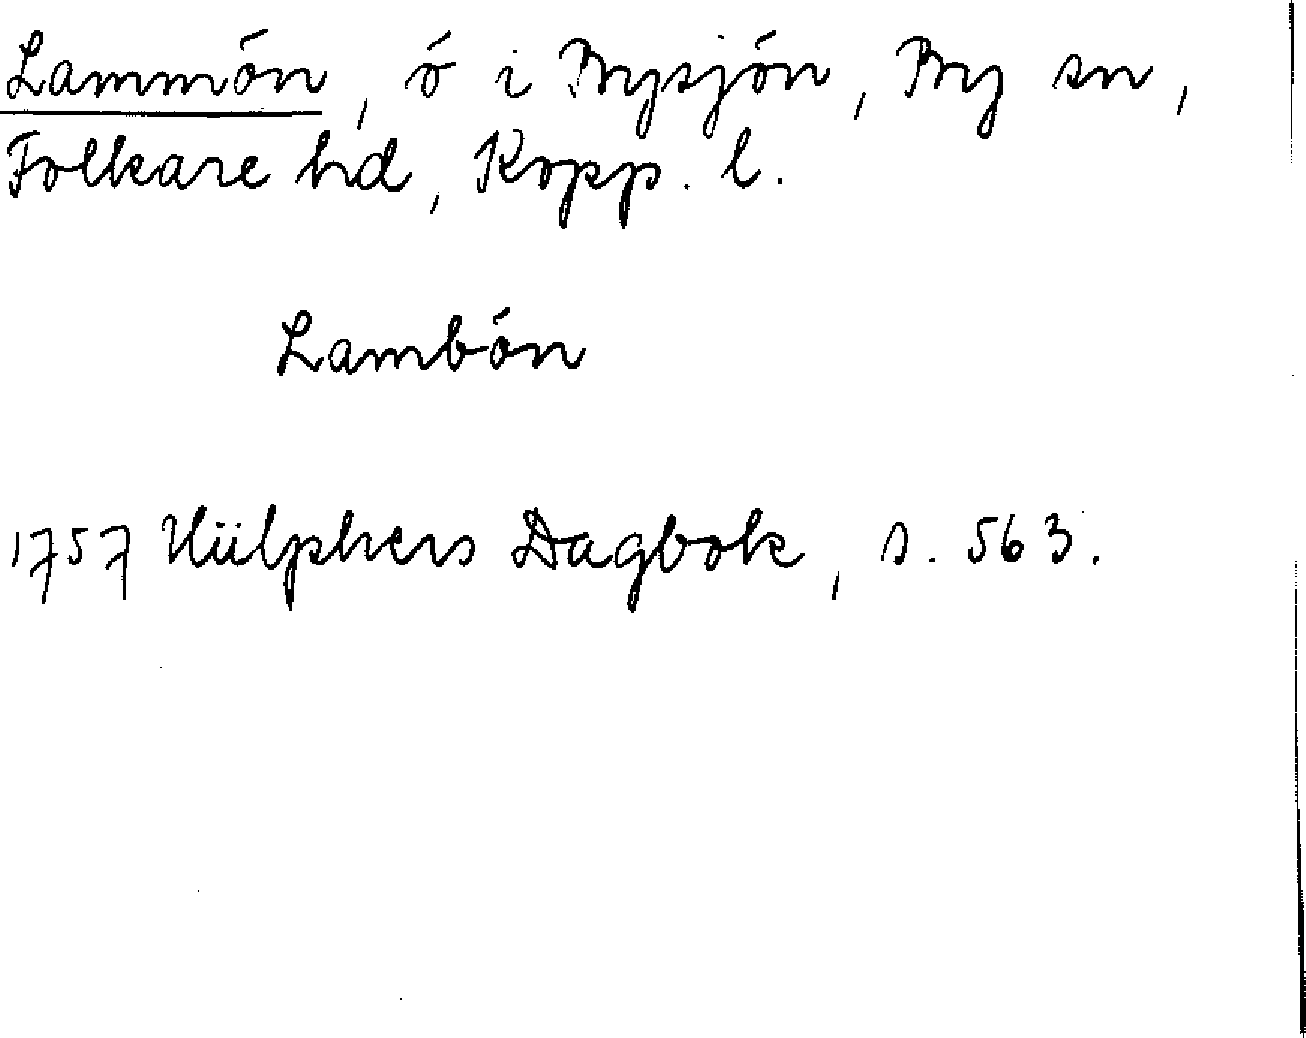 Lammön, ö i Bysjön, By sn,
Folkare hd, Kopp. l.
Lambön
1757 Hülphers Dagbok, s. 563.